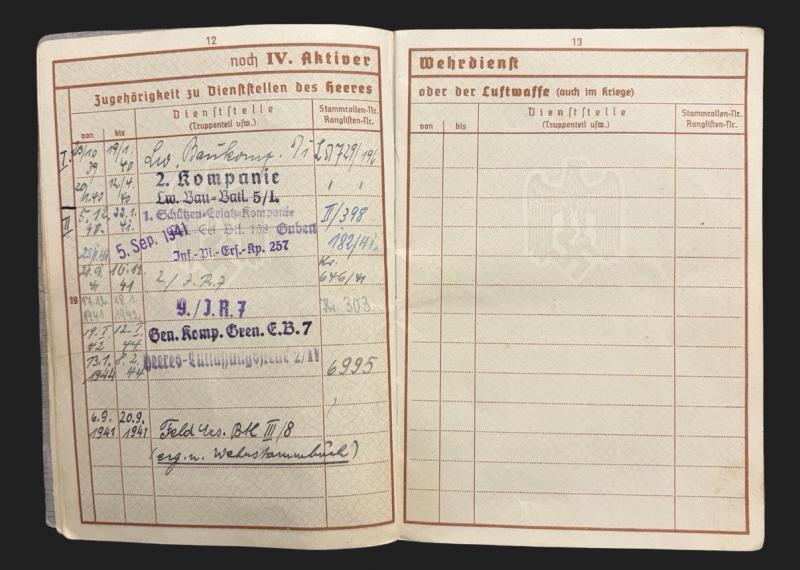 12
noch IV. Aktiver
Zugehörigkeit zu Dienststellen des Heeres
von bis
Dienststelle
(Truppenteil usw.)
Stammrollen-Nr.
Ranglisten-Nr.
I. 19/1. Lw. Baukomp.
39 40
2. Kompanie
12/4.
40 40 Lw. Bau-Batl. 5/I.
II 5.12. 22.1. 1. Schützen-Ersatz-Kompanie II/398
Guben
5. Sep. 1941 182/41
Inf.-Pi.-Ers.-Kp. 257
21.9. 16.12. 2./J.R.7
41 41 646/41
19 17.12. 18.1. 9./J.R.7 Nr. 303
1941 1942
19.I. 12.I. Gen. Komp. Gren. E.B. 7
42 44
13.1. 8.2. Heeres-Entlassungsstelle 2/IV
1944 44 6995
6.9. 20.9.
1941 1941 Feld Ers. Btl III/8
(erg. n. Wehrstammbuch)
13
Wehrdienst
oder der Luftwaffe (auch im Kriege)
von bis
Dienststelle
(Truppenteil usw.)
Stammrollen-Nr.
Ranglisten-Nr.